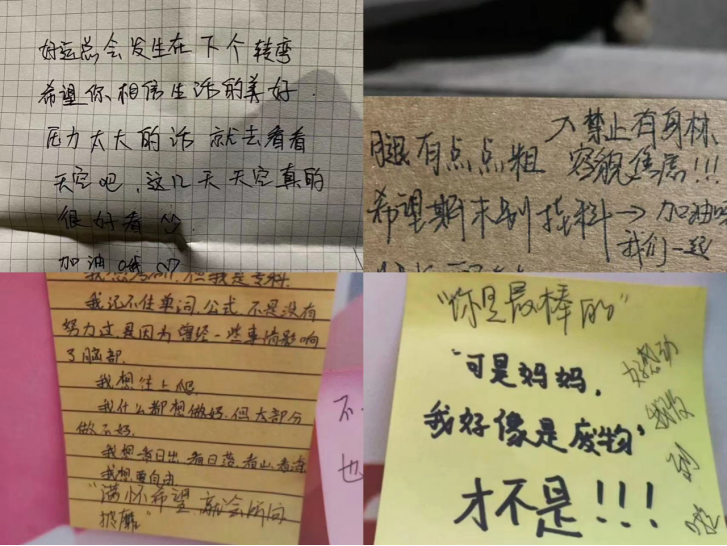 好运总会发生在下个转弯
希望你、相信生活的美好.
压力太大的话 就去看看
天空吧，这几天天空真的
很好看
加油哦
腿有点点粗
→禁止有身材、
容貌焦虑!!!
希望期末别挂科→加油呀
我们一起
但我是专科.
我记不住单词,公式,不是没有
努力过,是因为曾经一些事情影响
了脑部.
我想往上爬
我什么都想做好,但大部分
做不好.
我想看日出,看日落,看山,看海
我想要自由
"满怀希望 就会所向
披靡"
不
也
"你是最棒的"
"可是妈妈，
我好像是废物"
才不是!!!
好感动
我收
到